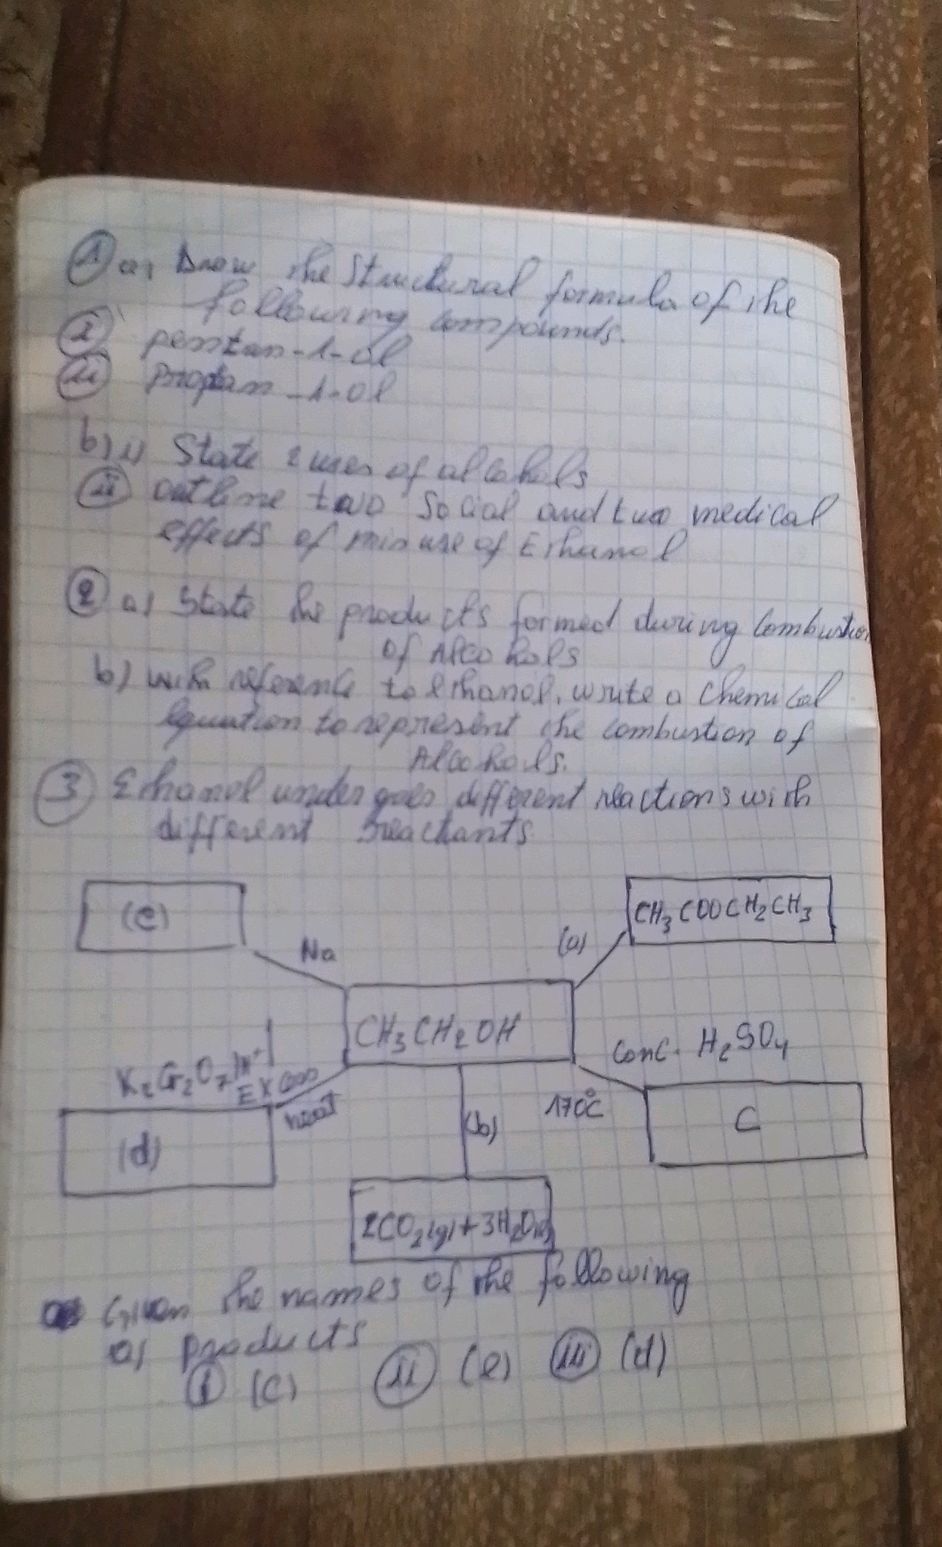 ① a, Draw the Structural formula of the
following compounds.
(i) pentan-1-ol
(ii) propan-1-ol
b) i) State 2 uses of alcohols
(ii) outline two Social and two medical
effects of misuse of Ethanol
② a) State the products formed during Combustion
of Alcohols
b) with reference to ethanol, write a Chemical
Equation to represent the combustion of
Alcohols.
③ Ethanol undergoes different reactions with
different reactants
(e)
CH₃COOCH₂CH₃
Na
(a)
CH₃CH₂OH
Conc. H₂SO₄
K₂Cr₂O₇/H⁺
Excess
heat
170°C
(d)
(b)
C
2CO₂(g) + 3H₂O
Given the names of the following
a) products
(i) (c) (ii) (e) (iii) (d)